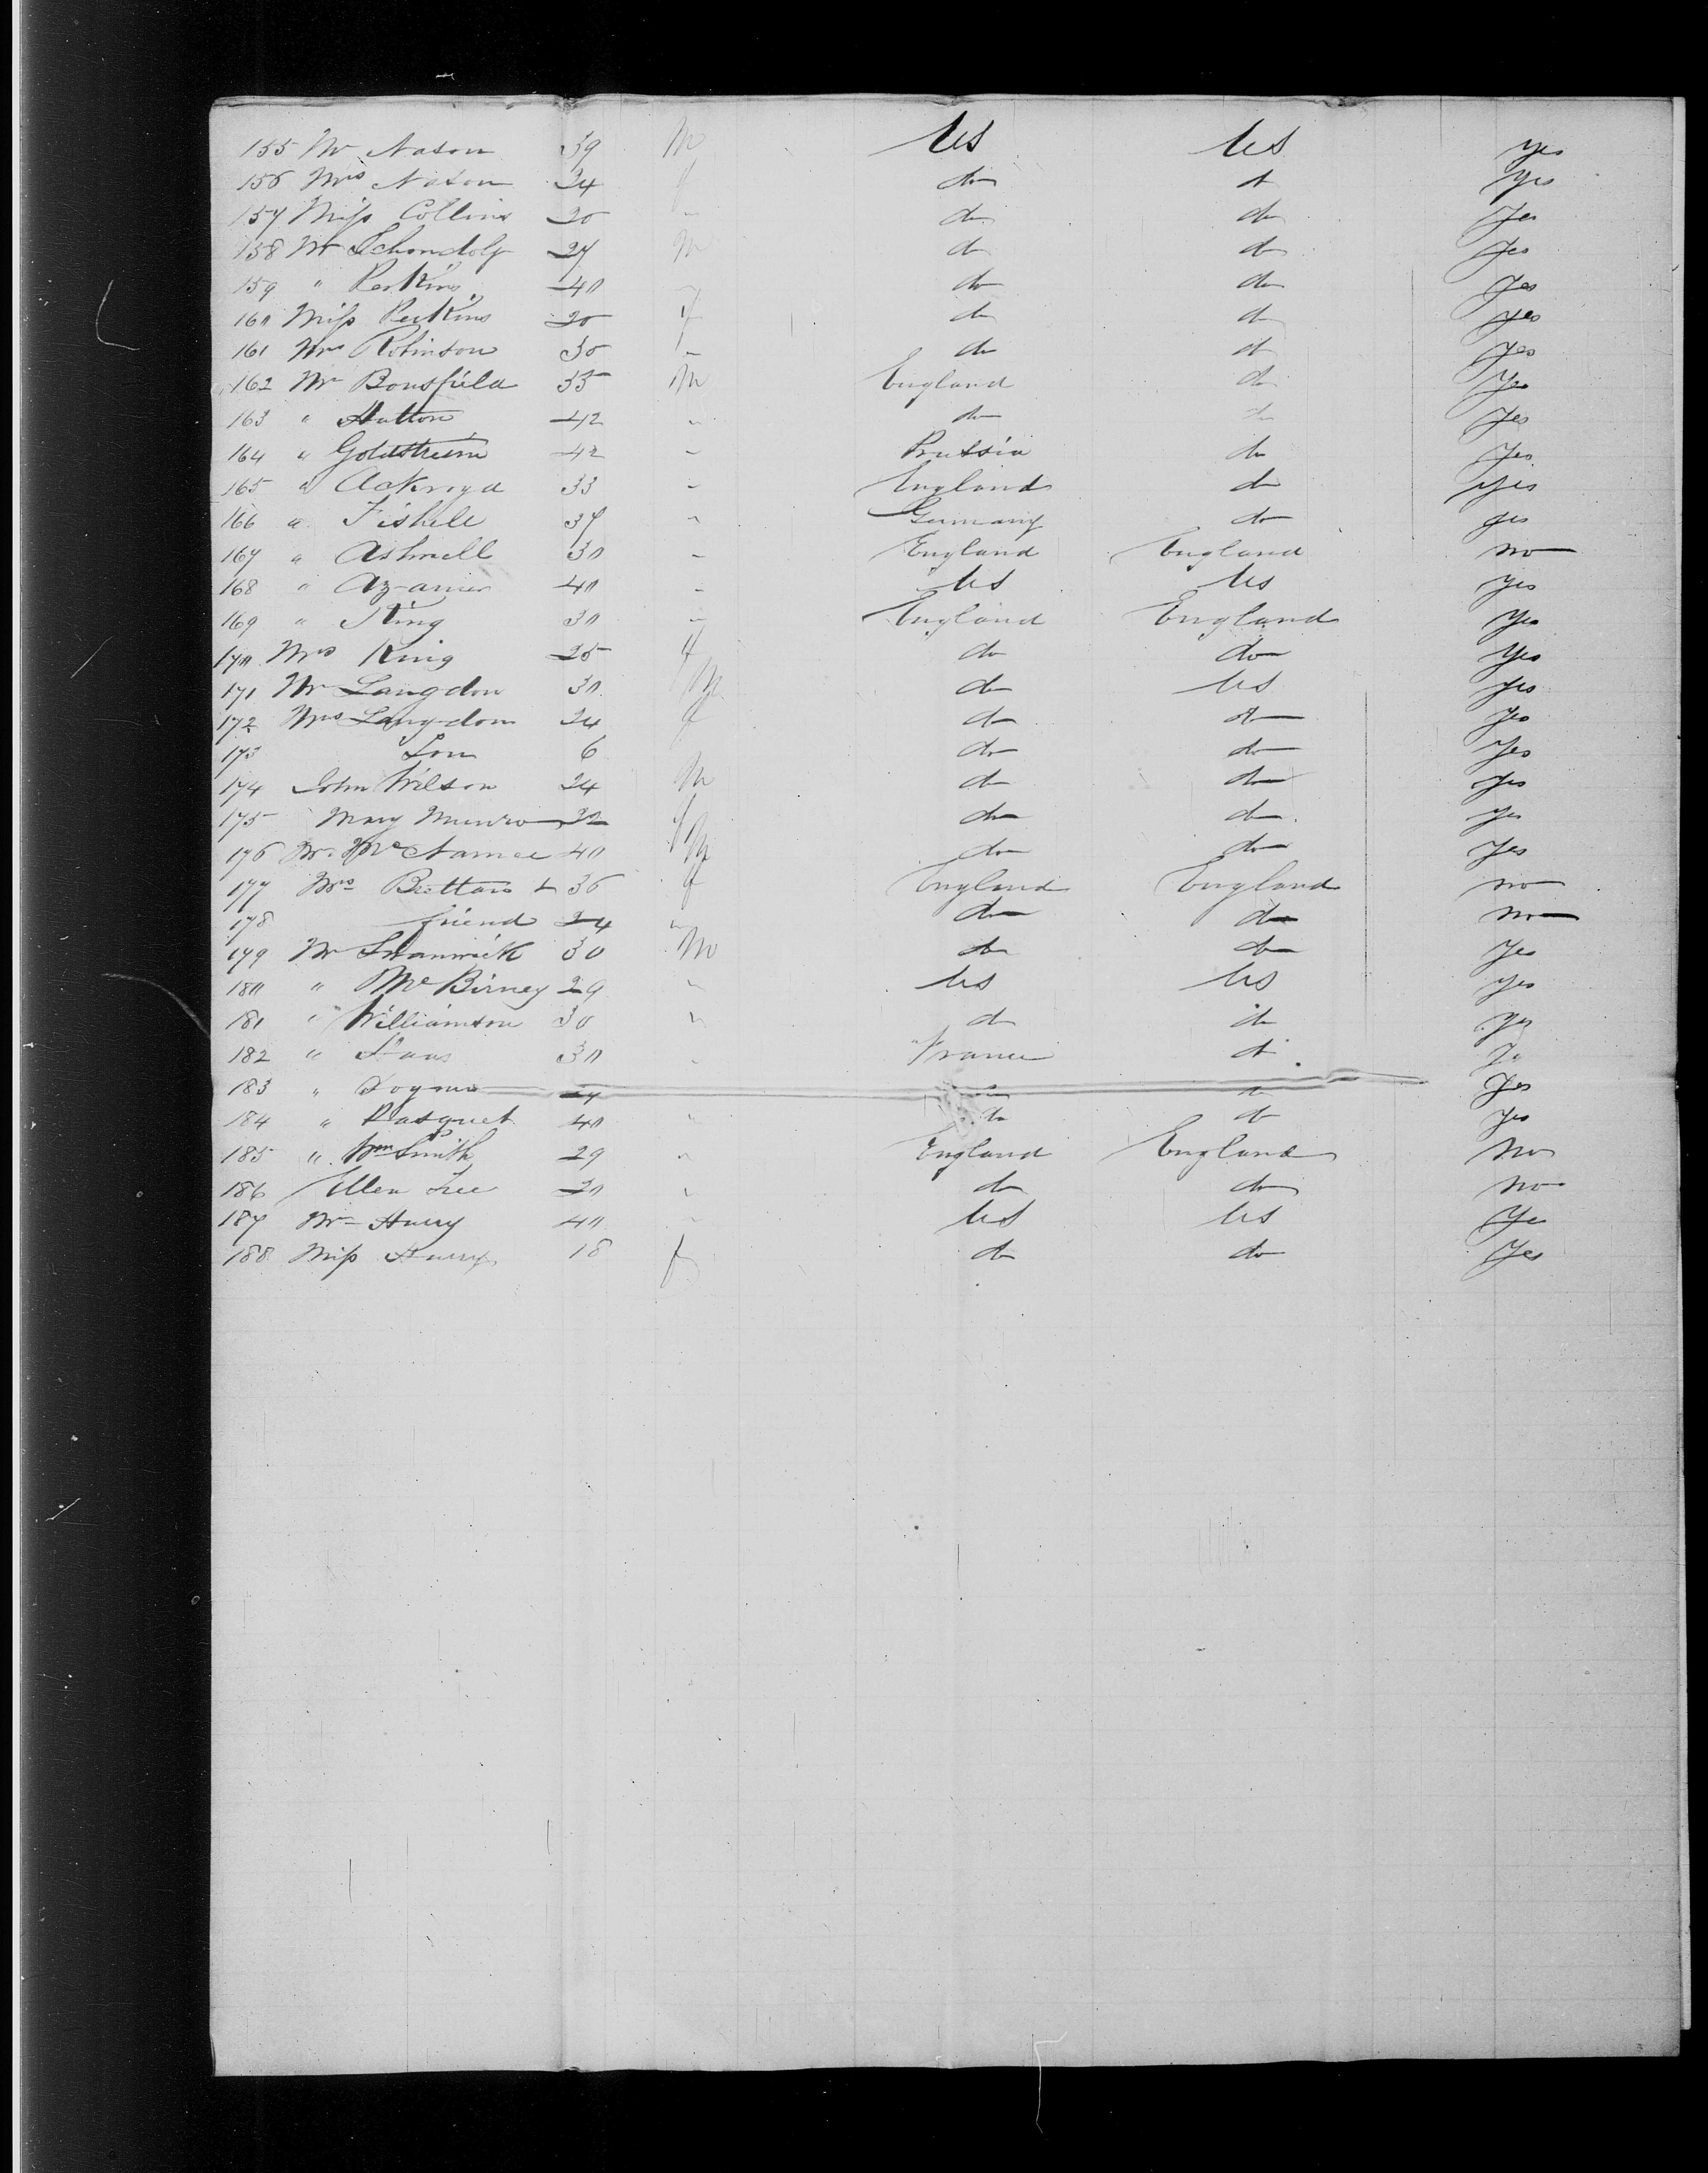 155 Mr Nason 39 M US US yes
156 Mrs Nason 24 f do do yes
157 Miss Collins 20 " do do yes
158 Mr Schondolf 27 M do do yes
159 " Perkins 40 " do do yes
160 Miss Perkins 20 f do do yes
161 Mrs Robinson 30 " do do yes
162 Mr Bousfield 35 M England do yes
163 " Hutton 42 " do do yes
164 " Goldstrein 42 " Prussia do yes
165 " Ackroyd 33 " England do yes
166 " Fishell 37 " Germany do yes
167 " Ashwell 30 " England England no
168 " 40 " US US yes
169 " King 30 " England England yes
170 Mrs King 25 f do do yes
171 Mr Langdon 30 M do US yes
172 Mrs Langdon 24 f do do yes
173 Son 6 do do yes
174 John Wilson 24 M do do yes
175 Mary Munro f do do yes
176 Mr McNamee 40 M do do yes
177 Mrs 36 f England England no
178 friend 24 " do do no
179 Mr Shanwick 30 M do do yes
180 " McBirney 29 " US US yes
181 " Williamson 30 " do do yes
182 " Haas 30 " France do yes
183 " do yes
184 " Pasquet 40 " do do yes
185 " Wm Smith 29 " England England no
186 Ellen Lee 20 " do do no
187 Mr Hurry 40 " US US yes
188 Miss Hurry 18 f do do yes